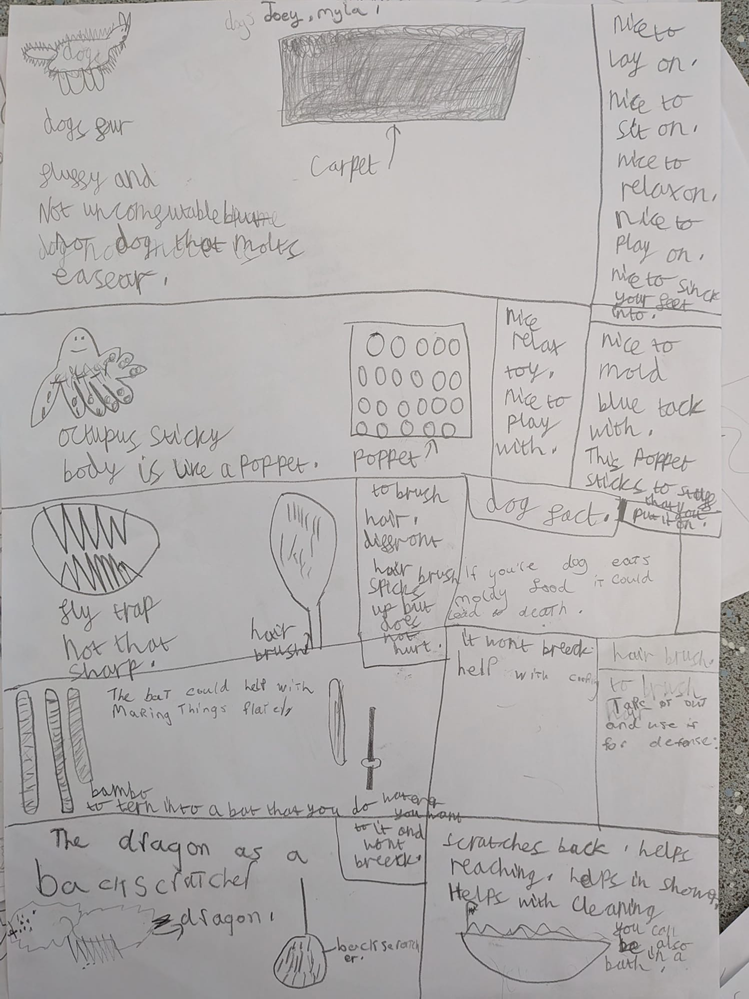 dogs Joey, myla.
dogs
dogs fur
carpet
fluffy and
Not uncomfutable
Not dog that molts
easear.
nice to
lay on.
nice to
sit on.
nice to
relax on.
nice to
play on.
nice to sinck
your feet
into.
octupus sticky
body is like a poppet.
poppet
nice
relax
toy.
nice to
play
with.
nice to
mold
blue tack
with.
This poppet
sticks to
that you
put it on.
fly trap
not that
sharp.
hair
brush
to brush
hair.
diffront
hair brush
spicks
up but
does
not
hurt.
dog fact.
if you're dog eats
moldy food it could
lead to death.
The bat could help with
Making Things flater,
bambo
to tern into a bat that you do
you want
to it and
wont
breeck.
it wont breeck.
help with
hair brush.
to brush
hair
Take it out
and use it
for defense.
The dragon as a
backscratcher
dragon.
backscratch
er.
scratches back. helps
reaching. helps in shower.
Helps with cleaning
you can
be also
in a
bath.